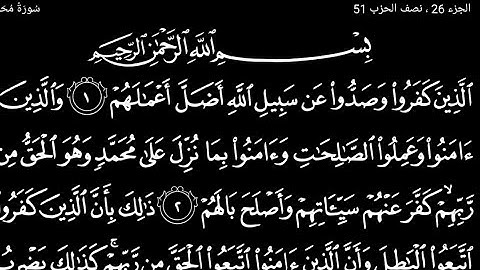 الجزء 26 ، نصف الحزب 51
سُورَةُ
بِسْمِ ٱللَّهِ ٱلرَّحْمَٰنِ ٱلرَّحِيمِ
ٱلَّذِينَ كَفَرُوا۟ وَصَدُّوا۟ عَن سَبِيلِ ٱللَّهِ أَضَلَّ أَعْمَٰلَهُمْ ١ وَٱلَّذِينَ
ءَامَنُوا۟ وَعَمِلُوا۟ ٱلصَّٰلِحَٰتِ وَءَامَنُوا۟ بِمَا نُزِّلَ عَلَىٰ مُحَمَّدٍ وَهُوَ ٱلْحَقُّ مِن
رَّبِّهِمْ ۙ كَفَّرَ عَنْهُمْ سَيِّـَٔاتِهِمْ وَأَصْلَحَ بَالَهُمْ ٢ ذَٰلِكَ بِأَنَّ ٱلَّذِينَ كَفَرُوا۟
ٱتَّبَعُوا۟ ٱلْبَٰطِلَ وَأَنَّ ٱلَّذِينَ ءَامَنُوا۟ ٱتَّبَعُوا۟ ٱلْحَقَّ مِن رَّبِّهِمْ ۚ كَذَٰلِكَ يَضْرِبُ